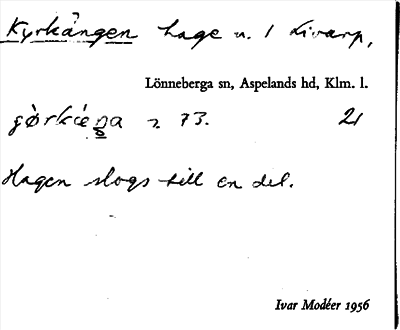 Kyrkängen hage n. 1 Livarp,
Lönneberga sn, Aspelands hd, Klm. l.
73. 21
Hagen slogs till en del.
Ivar Modéer 1956